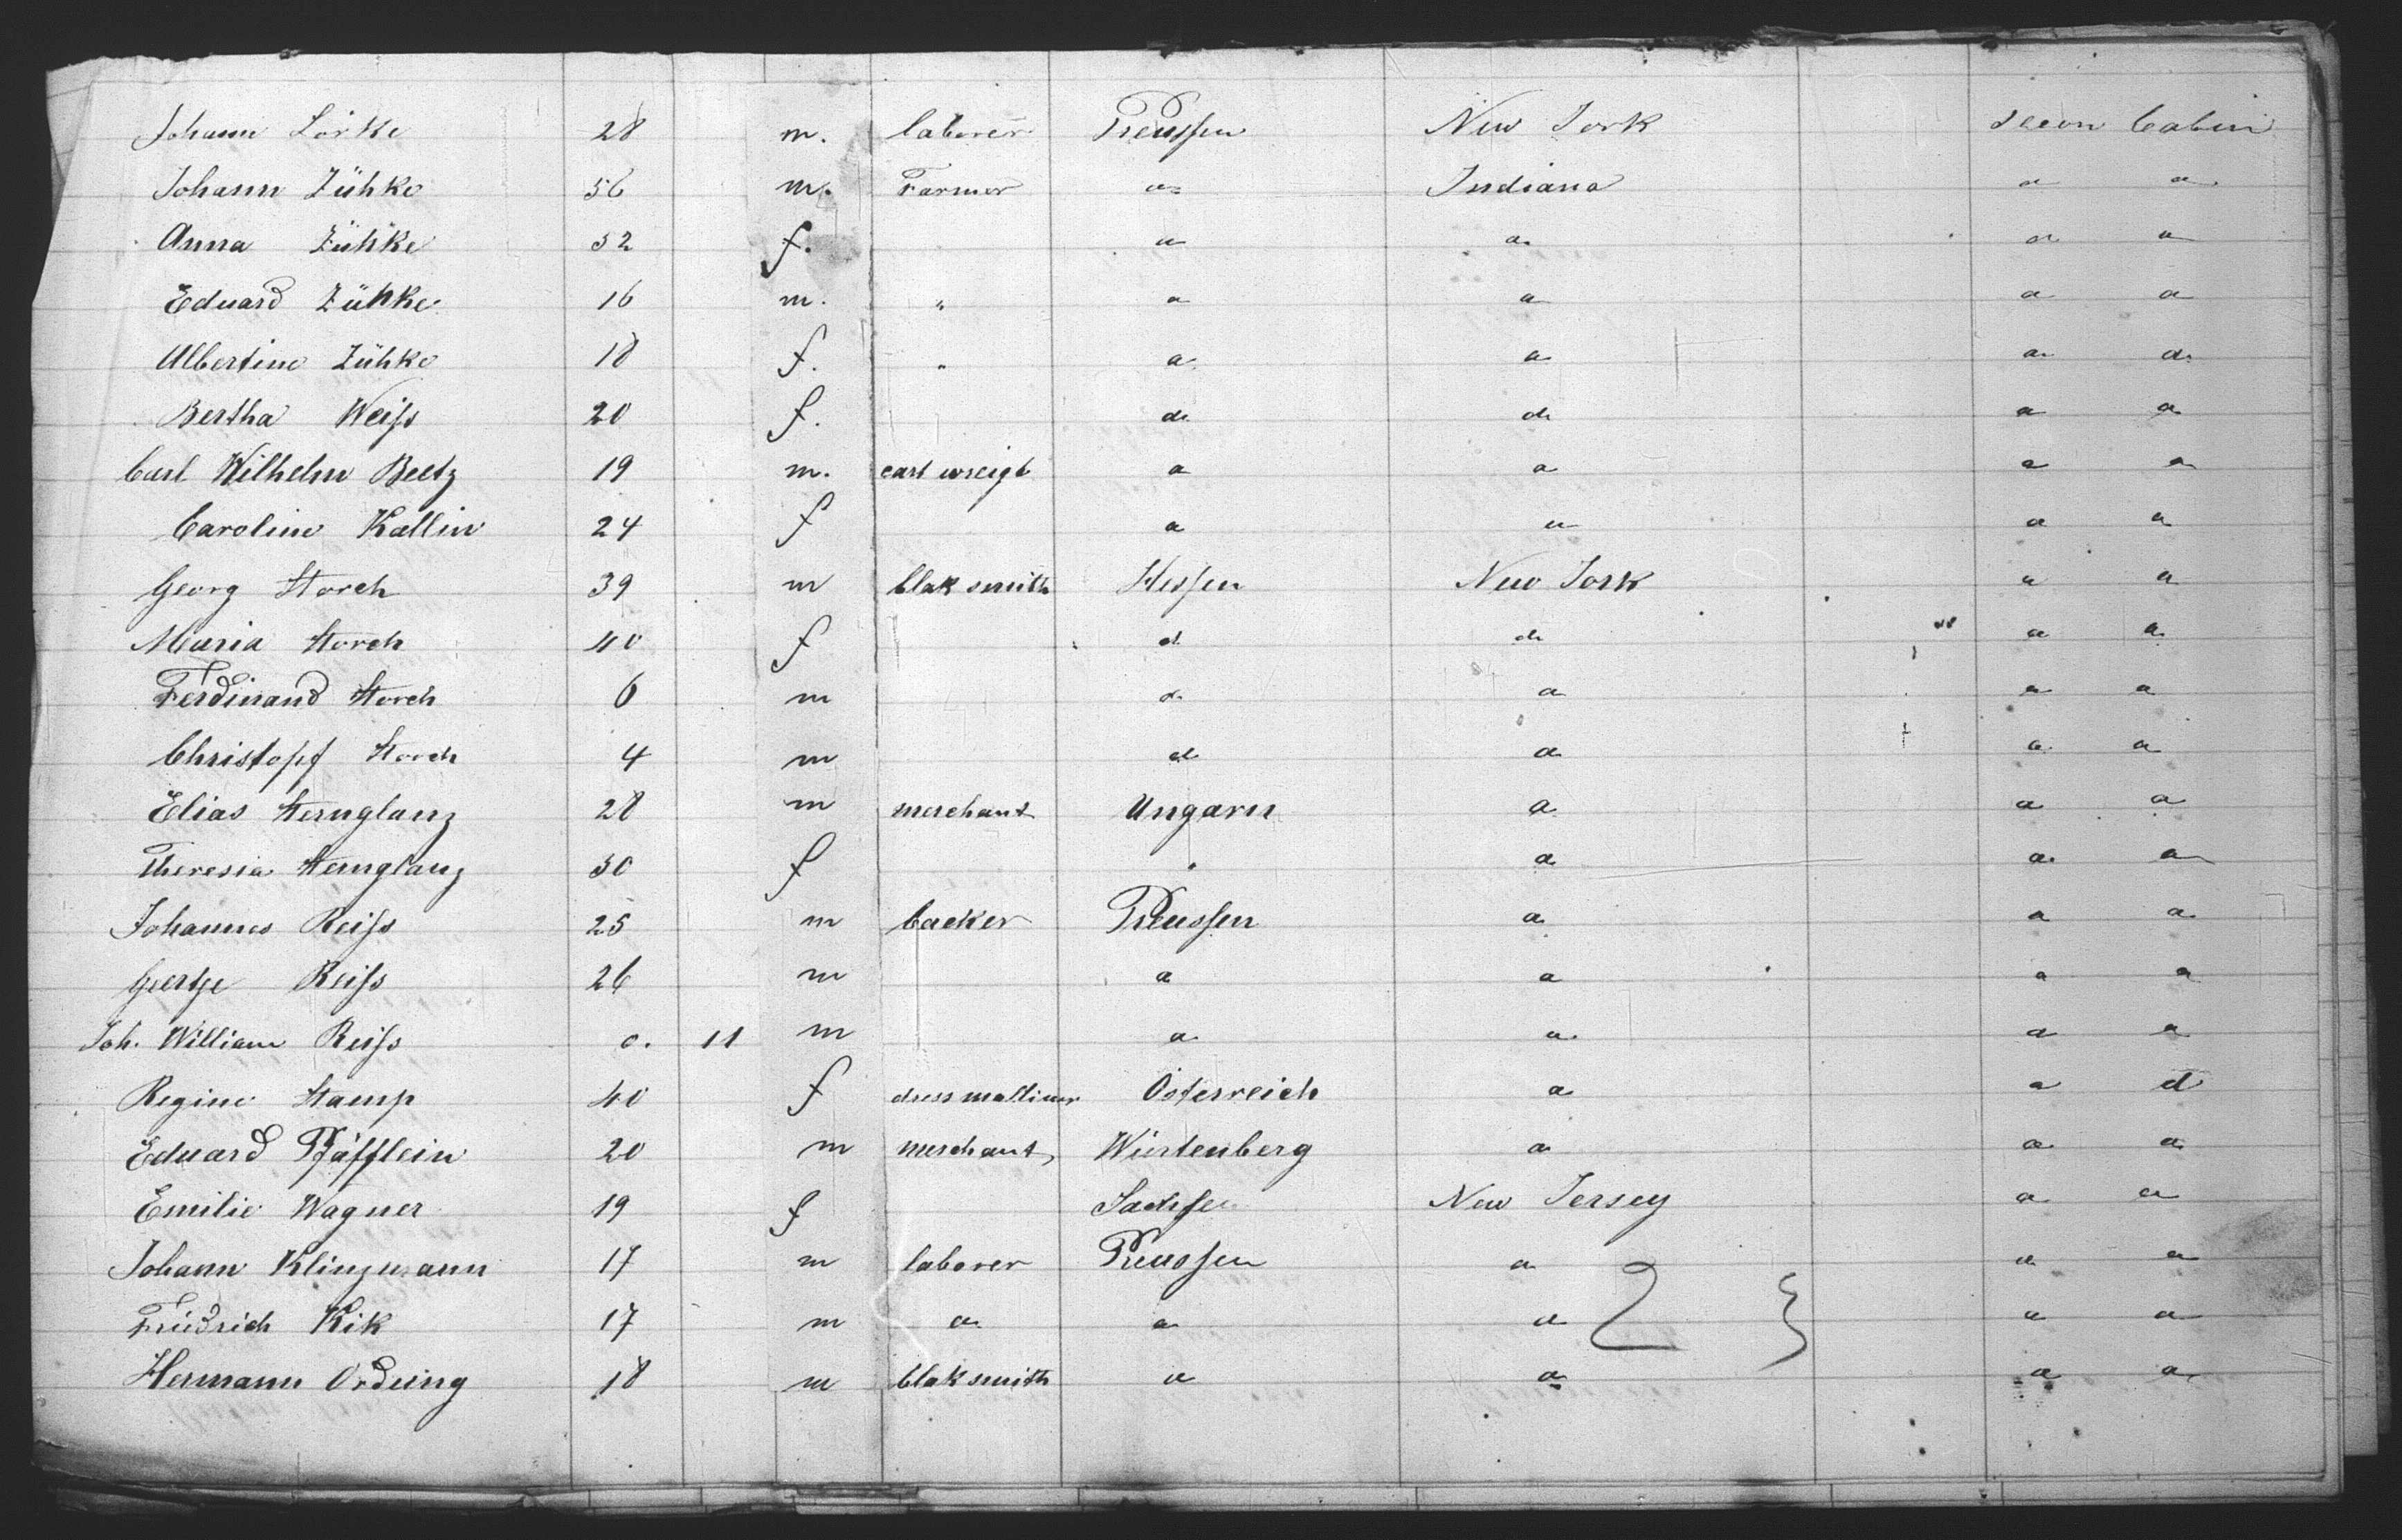 Johann Lörke 28 m. laborer Preussen New York secon Cabin
Johann Zühke 56 m. Farmer a Indiana a a
Anna Zühke 52 f. a a a a
Eduard Zühke 16 m. " a a a a
Albertine Zühke 18 f. " a a a a
Bertha Weiss 20 f. d d a a
Carl Wilhelm Beetz 19 m. cart wreigt a a a a
Caroline Kallin 24 f a a a a
Georg Storch 39 m blak smith Hessen New York a a
Maria Storch 40 f d d a a
Ferdinand Storch 6 m d a a a
Christopf Storch 4 m d a a a
Elias Sternglanz 28 m merchant Ungarn a a a
Theresia Sternglanz 30 f " a a a
Johannes Reiss 25 m backer Preussen a a a
Geertje Reiss 26 m a a a a
Joh. William Reiss 0. 11 m a a a a
Regine Stamp 40 f Österreich a a d
Eduard Pfäfflein 20 m merchant Würtenberg a a a
Emilie Wagner 19 f Sachsen New Jersey a a
Johann Klingmann 17 m laborer Preussen a a a
Friedrich Kik 17 m a a a a a
Hermann Ordeing 18 m blak smith a a a a